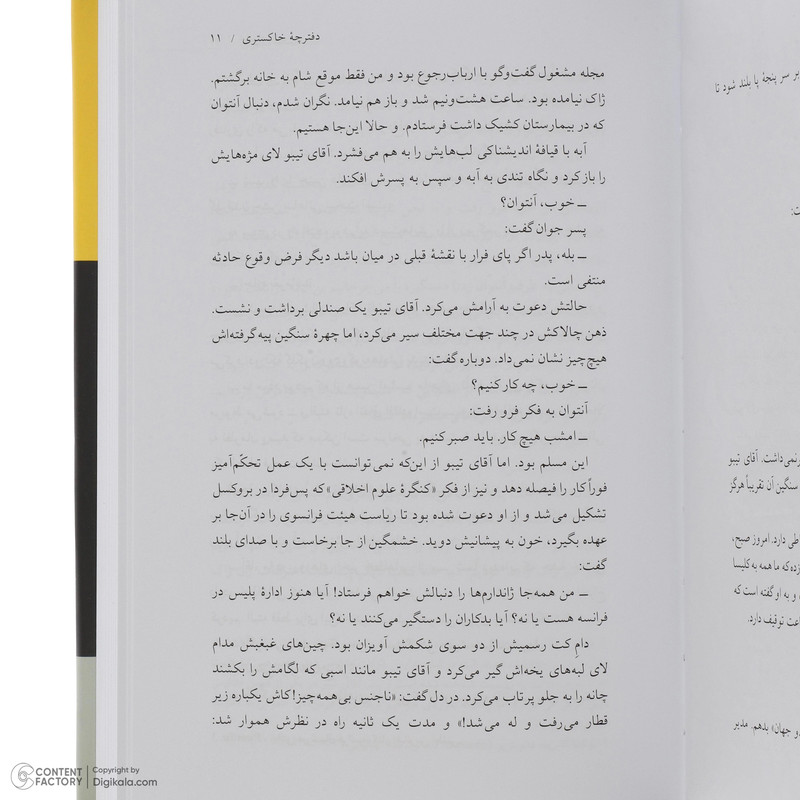 دفترچهٔ خاکستری / ۱۱
مجله مشغول گفت‌وگو با ارباب‌رجوع بود و من فقط موقع شام به خانه برگشتم.
ژاک نیامده بود. ساعت هشت‌ونیم شد و باز هم نیامد. نگران شدم، دنبال آنتوان
که در بیمارستان کشیک داشت فرستادم. و حالا این‌جا هستیم.
آبه با قیافهٔ اندیشناکی لب‌هایش را به هم می‌فشرد. آقای تیبو لای مژه‌هایش
را باز کرد و نگاه تندی به آبه و سپس به پسرش افکند.
ــ خوب، آنتوان؟
پسر جوان گفت:
ــ بله، پدر اگر پای فرار با نقشهٔ قبلی در میان باشد دیگر فرض وقوع حادثه
منتفی است.
حالتش دعوت به آرامش می‌کرد. آقای تیبو یک صندلی برداشت و نشست.
ذهن چالاکش در چند جهت مختلف سیر می‌کرد، اما چهرهٔ سنگین پیه گرفته‌اش
هیچ‌چیز نشان نمی‌داد. دوباره گفت:
ــ خوب، چه کار کنیم؟
آنتوان به فکر فرو رفت:
ــ امشب هیچ کار. باید صبر کنیم.
این مسلم بود. اما آقای تیبو از این‌که نمی‌توانست با یک عمل تحکّم‌آمیز
فوراً کار را فیصله دهد و نیز از فکر «کنگرهٔ علوم اخلاقی» که پس‌فردا در بروکسل
تشکیل می‌شد و از او دعوت شده بود تا ریاست هیئت فرانسوی را در آن‌جا بر
عهده بگیرد، خون به پیشانیش دوید. خشمگین از جا برخاست و با صدای بلند
گفت:
ــ من همه‌جا ژاندارم‌ها را دنبالش خواهم فرستاد! آیا هنوز ادارهٔ پلیس در
فرانسه هست یا نه؟ آیا بدکاران را دستگیر می‌کنند یا نه؟
دامِ کت رسمیش از دو سوی شکمش آویزان بود. چین‌های غبغبش مدام
لای لبه‌های یخه‌اش گیر می‌کرد و آقای تیبو مانند اسبی که لگامش را بکشند
چانه را به جلو پرتاب می‌کرد. در دل گفت: «ناجنس بی‌همه‌چیز! کاش یکباره زیر
قطار می‌رفت و له می‌شد!» و مدت یک ثانیه راه در نظرش هموار شد:
بر سر پنجهٔ پا بلند شود تا
ت:
رنمی‌داشت. آقای تیبو
سنگین آن تقریباً هرگز
اطی دارد. امروز صبح،
زده که ما همه به کلیسا
و به او گفته است که
اعت توقیف دارد.
و جهان» بدهم. مدیر
CONTENT FACTORY
Copyright by
Digikala.com